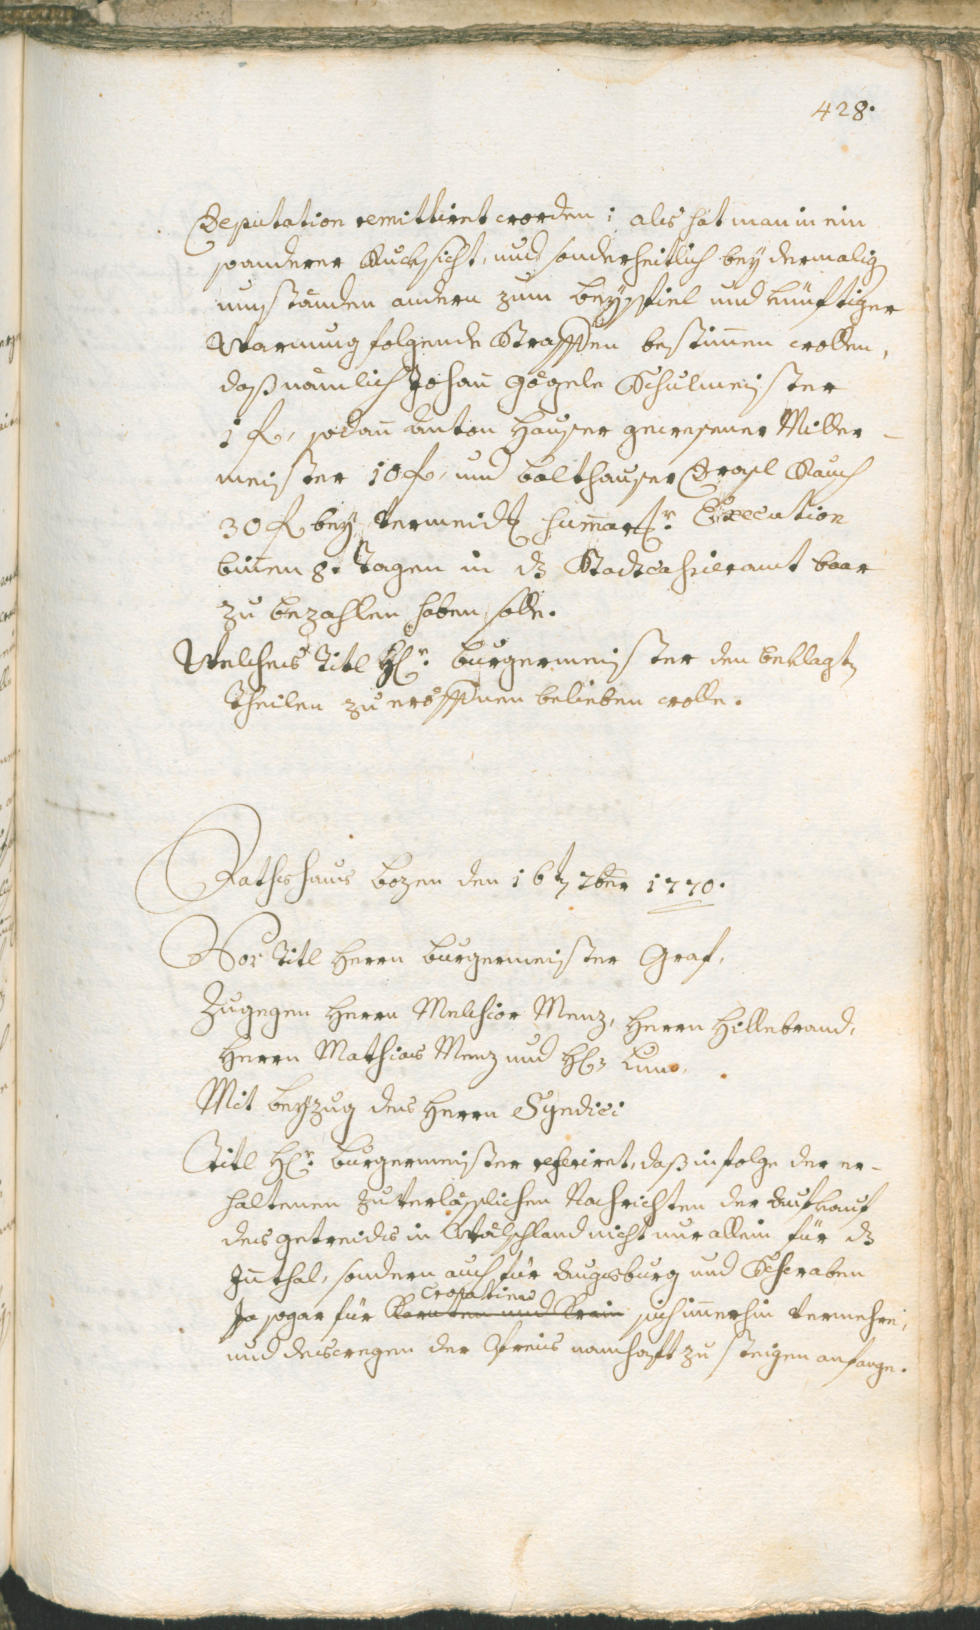 428.
Deputation remittiret worden; als hat man in ein
so anderer Rucksicht, und sonderheitlich bey dermalig
umständen andern zum beyspiel und künftiger
Warnung folgende Straffen bestimen wollen,
daß nämlich Johan Gögele Schulmeister
1 f, sodan Anton Hauser gewesener Miller-
meister 10 f, und balthauser Rauch
30 f bey vermeidt sumarisr. Execution
binen 8. Tagen in dz Stadtcassieramt baar
zu bezahlen haben solle.
Welches Titl Hr. burgermeister den beklagtn
Theilen zu eröffnen belieben wolle.
Rathshaus bozen den 16tn 7ber 1770.
Vor Titl Herrn burgermeister Graf,
Zugegen Herrn Melchior Menz, Herrn Hillebrand,
Herrn Mathias Menz und H. Lun.
Mit beyzug des Herrn Syndici
Titl Hr. burgermeister referiret, daß infolge der er-
haltenen zuverläßlichen Nachrichten der Aufkauf
des getreids in Wälschland nicht nur allein für dz
Inthal, sondern auch für Augsburg und Schwaben
Croatien
Ja sogar für Karnten und Krain sich imerhin vermehre,
und deswegen der Preis namhaft zu steigen anfange.